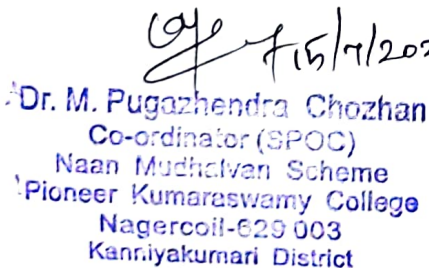 15/7/202
Dr. M. Pugazhendra Chozhan
Co-ordinator (SPOC)
Naan Mudhalvan Scheme
Pioneer Kumaraswamy College
Nagercoil-629 003
Kanniyakumari District